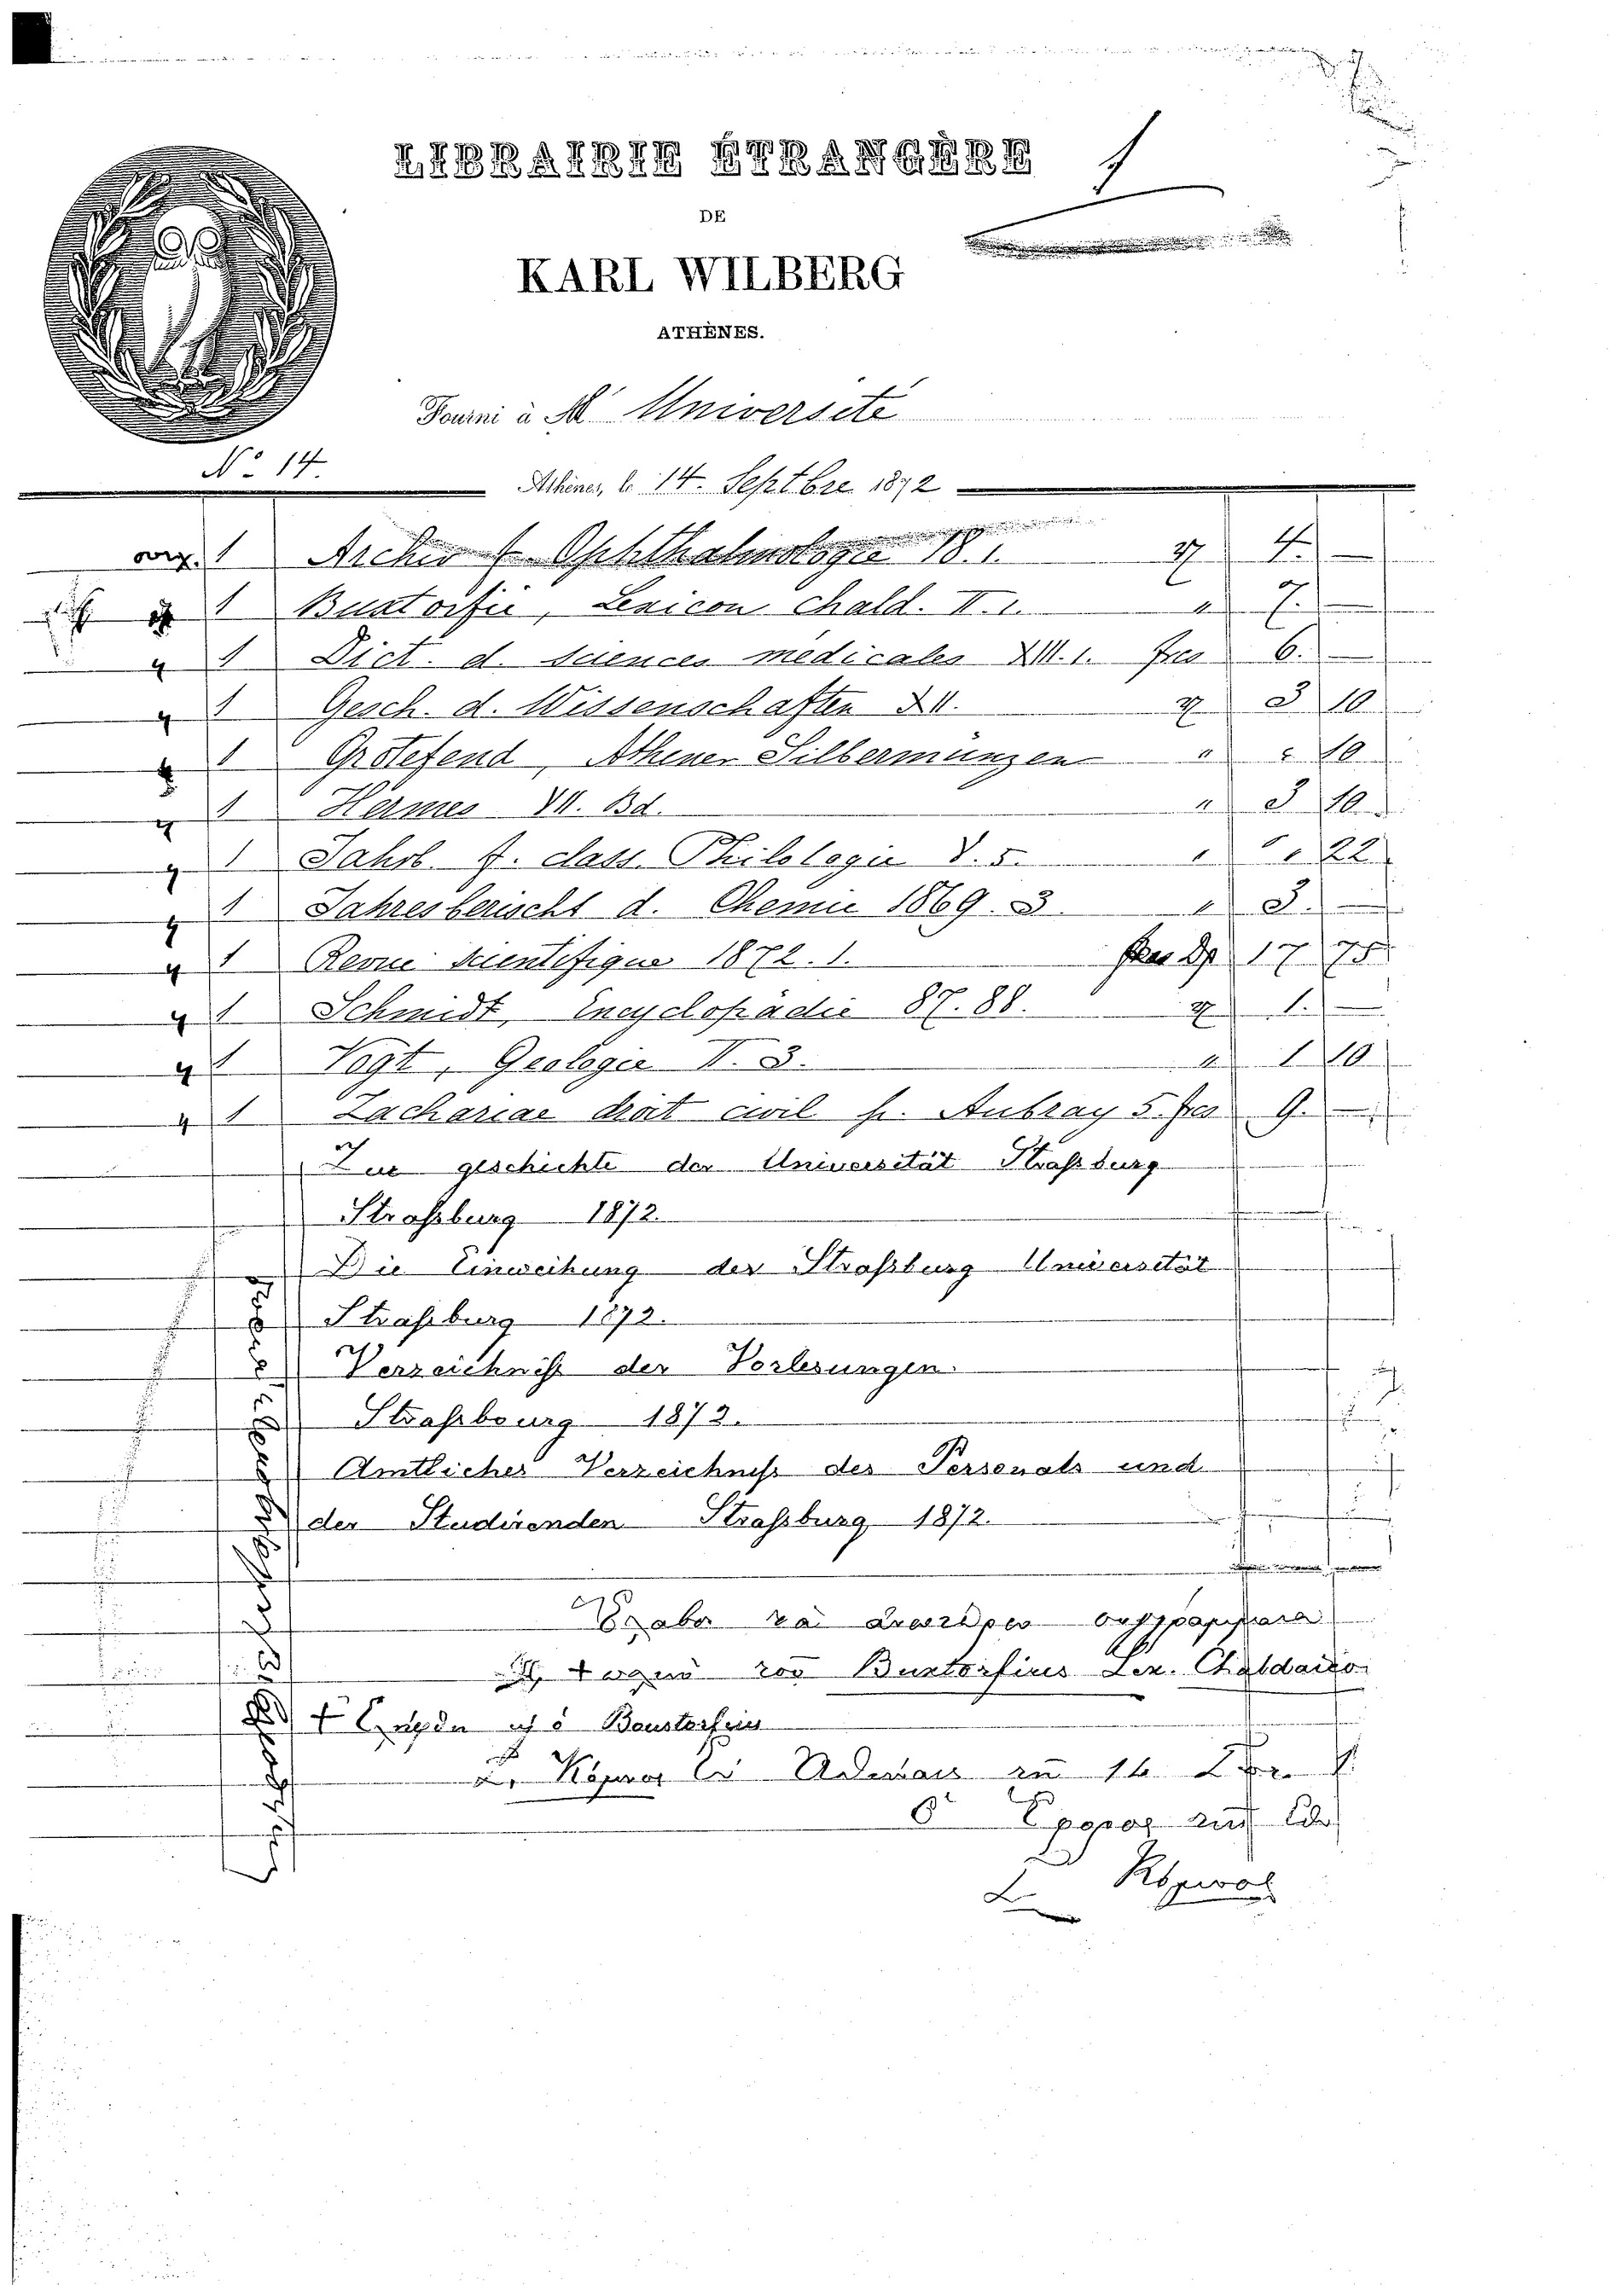 LIBRAIRIE ÉTRANGÈRE
DE
KARL WILBERG
ATHÈNES.
Fourni à M Université
Nº 14.
Athènes, le 14. Septbre 1872
1 Archiv f. Ophthalmologie 18. 1. 4. —
1 Buxtorfii, Lexicon chald. II. 1. " 7. —
1 Dict. d. sciences médicales XII. 1. frcs 6. —
1 Gesch. d. Wissenschaften XII. 3 10
1 Grotefend, Athener Silbermünzen " " 10
1 Hermes VII. Bd. " 3 10
1 Jahrb. f. class. Philologie 8. 5. " " 22
1 Jahresbericht d. Chemie 1869. 3. " 3. —
1 Revue scientifique 1872. 1. 17 75
1 Schmidt, Encyclopädie 87. 88. 1. —
1 Vogt, Geologie II. 3. " 1 10
1 Zachariae droit civil p. Aubray 5. frcs 9. —
Zur geschichte der Universität Straßburg
Straßburg 1872.
Die Einweihung der Straßburg Universität
Straßburg 1872.
Verzeichniß der Vorlesungen
Straßbourg 1872.
Amtliches Verzeichniß des Personals und
der Studirenden Straßburg 1872.
Ἔλαβον τὰ ἀνωτέρω συγγράμματα
τοῦ Buxtorfius Lex. Chaldaico
ὁ Bouxtorfius
Ἐν Ἀθήναις τῇ 16
Ὁ Ἔφορος τῆς